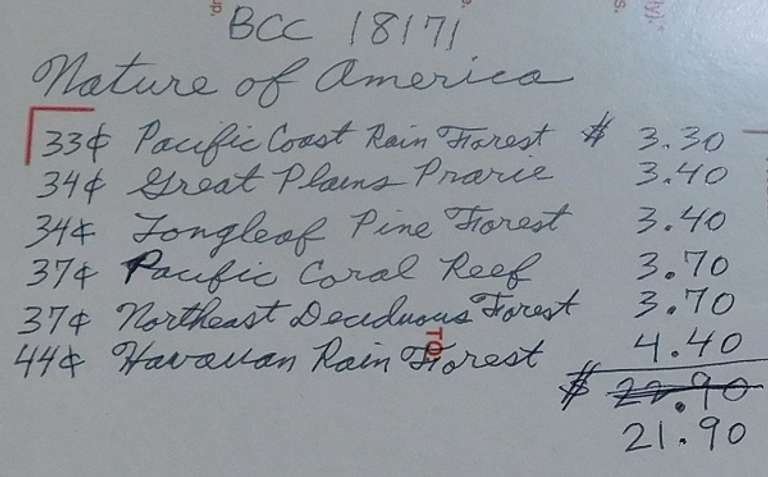 up.
s.
ly)."
BCC 18171
Nature of America
33¢ Pacific Coast Rain Forest $ 3.30
34¢ Great Plains Prarie 3.40
34¢ Longleaf Pine Forest 3.40
37¢ Pacific Coral Reef 3.70
37¢ Northeast Deciduous Forest 3.70
TO
44¢ Havauan Rain Forest 4.40
$ 22.90
21.90